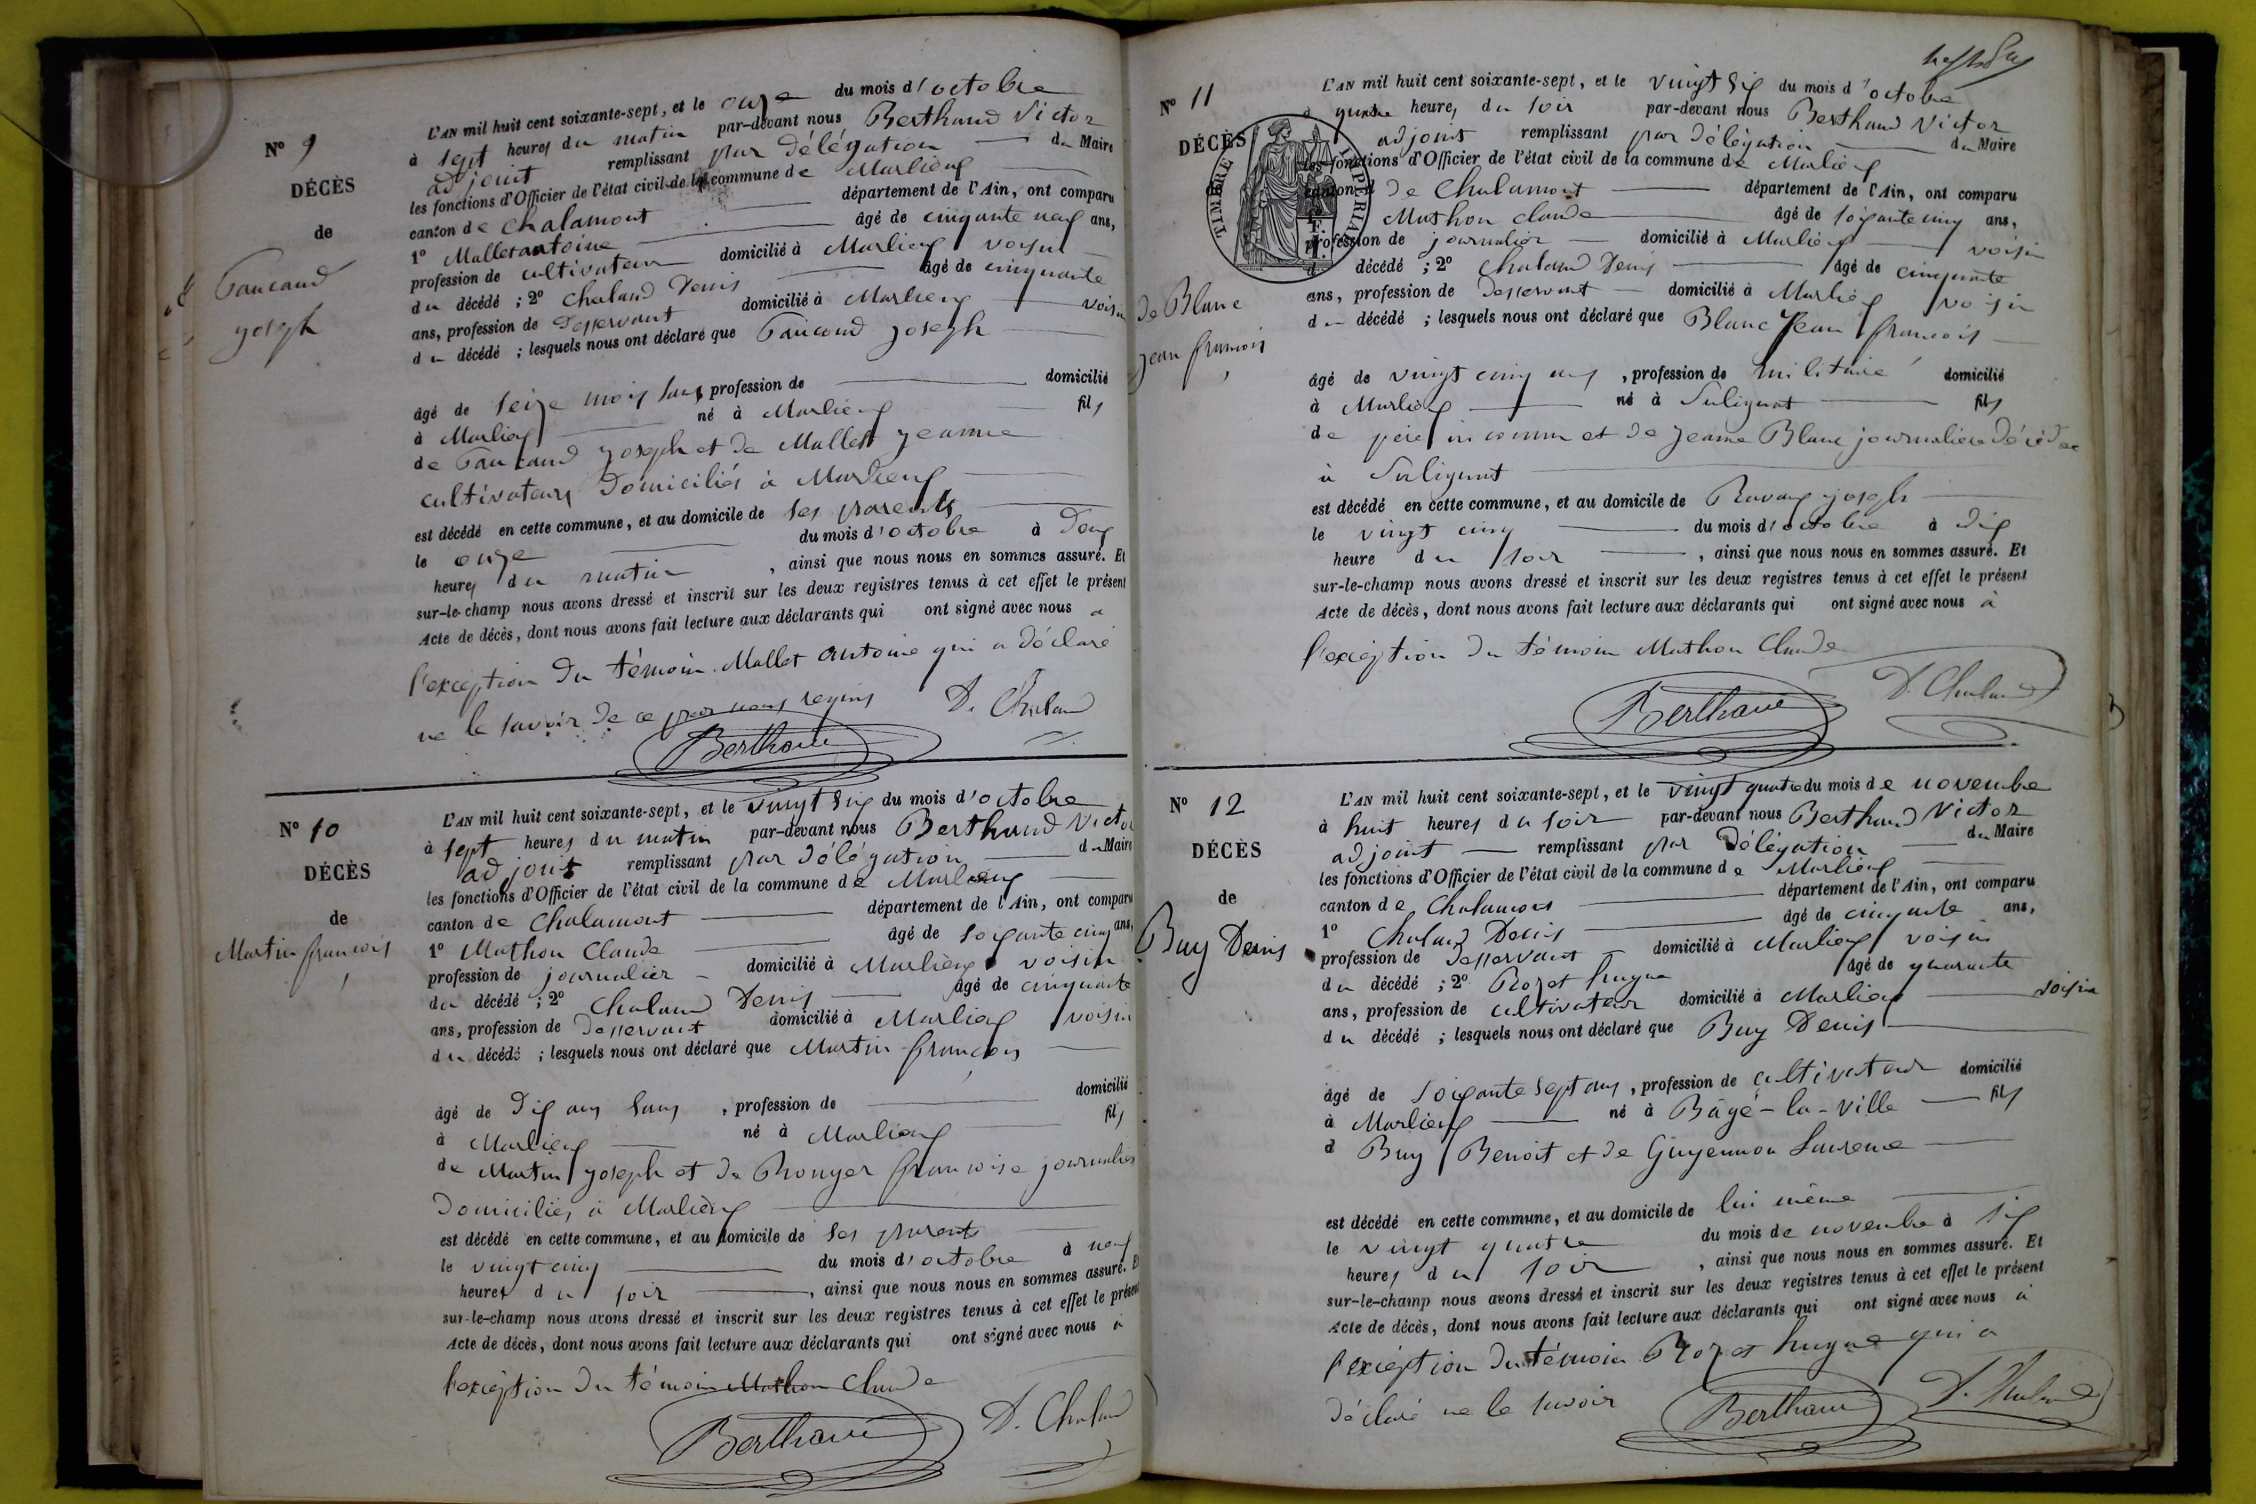 N° 9
DÉCÈS
de
Faucaud
joseph
L'AN mil huit cent soixante-sept, et le onze du mois d'octobre
à sept heures du matin par-devant nous Berthaud Victor
adjoint remplissant par délégation du Maire
les fonctions d'Officier de l'état civil de la commune de Marlieux
canton de Chalamont département de l'Ain, ont comparu
1° Mallet antoine âgé de cinquante neuf ans,
profession de cultivateur domicilié à Marlieux voisin
du décédé ; 2° Chaland Denis âgé de cinquante
ans, profession de desservant domicilié à Marlieux voisin
du décédé ; lesquels nous ont déclaré que Faucaud joseph
âgé de seize mois sans profession de domicilié
à Marlieux né à Marlieux fils
de Faucaud joseph et de Mallet jeanne
cultivateurs domiciliés à Marlieux
est décédé en cette commune, et au domicile de ses parents
le onze du mois d'octobre à deux
heures du matin , ainsi que nous nous en sommes assuré. Et
sur-le-champ nous avons dressé et inscrit sur les deux registres tenus à cet effet le présent
Acte de décès, dont nous avons fait lecture aux déclarants qui ont signé avec nous à
l'exception du témoin Mallet antoine qui a déclaré
ne le savoir de ce par nous requis D. Chaland
Berthaud
N° 10
DÉCÈS
de
Martin françois
L'AN mil huit cent soixante-sept, et le vingt six du mois d'octobre
à sept heures du matin par-devant nous Berthaud Victor
adjoint remplissant par délégation du Maire
les fonctions d'Officier de l'état civil de la commune de Marlieux
canton de Chalamont département de l'Ain, ont comparu
1° Mathon Claude âgé de soixante cinq ans,
profession de journalier domicilié à Marlieux voisin
du décédé ; 2° Chaland Denis âgé de cinquante
ans, profession de desservant domicilié à Marlieux voisin
du décédé ; lesquels nous ont déclaré que Martin françois
âgé de dix ans sans , profession de domicilié
à Marlieux né à Marlieux fils
de Martin joseph et de Rouyer françoise journaliers
domiciliés à Marlieux
est décédé en cette commune, et au domicile de ses parents
le vingt cinq du mois d'octobre à neuf
heures du soir , ainsi que nous nous en sommes assuré. Et
sur-le-champ nous avons dressé et inscrit sur les deux registres tenus à cet effet le présent
Acte de décès, dont nous avons fait lecture aux déclarants qui ont signé avec nous à
l'exception du témoin Mathon Claude
Berthaud D. Chaland
N° 11
DÉCÈS
TIMBRE IMPÉRIAL
de Blanc
jean françois
L'AN mil huit cent soixante-sept, et le vingt six du mois d'octobre
à quatre heures du soir par-devant nous Berthaud Victor
adjoint remplissant par délégation du Maire
les fonctions d'Officier de l'état civil de la commune de Marlieux
canton de Chalamont département de l'Ain, ont comparu
Mathon Claude âgé de soixante cinq ans,
profession de journalier domicilié à Marlieux voisin
décédé ; 2° Chaland Denis âgé de cinquante
ans, profession de desservant domicilié à Marlieux voisin
du décédé ; lesquels nous ont déclaré que Blanc Jean françois
âgé de vingt cinq ans , profession de militaire domicilié
à Marlieux né à Sulignat fils
de père inconnu et de jeanne Blanc journalière décédée
à Sulignat
est décédé en cette commune, et au domicile de Ravaux joseph
le vingt cinq du mois d'octobre à dix
heure du soir , ainsi que nous nous en sommes assuré. Et
sur-le-champ nous avons dressé et inscrit sur les deux registres tenus à cet effet le présent
Acte de décès, dont nous avons fait lecture aux déclarants qui ont signé avec nous à
l'exception du témoin Mathon Claude
Berthaud D. Chaland
N° 12
DÉCÈS
de
Buy Denis
L'AN mil huit cent soixante-sept, et le vingt quatre du mois de novembre
à huit heures du soir par-devant nous Berthaud Victor
adjoint remplissant par délégation du Maire
les fonctions d'Officier de l'état civil de la commune de Marlieux
canton de Chalamont département de l'Ain, ont comparu
1° Chaland Denis âgé de cinquante ans,
profession de desservant domicilié à Marlieux voisin
du décédé ; 2° Rozet hugue âgé de quarante
ans, profession de cultivateur domicilié à Marlieux voisin
du décédé ; lesquels nous ont déclaré que Buy Denis
âgé de soixante sept ans , profession de cultivateur domicilié
à Marlieux né à Bâgé-la-Ville fils
d Buy Benoit et de Guyennon Laurence
est décédé en cette commune, et au domicile de lui même
le vingt quatre du mois de novembre à six
heures du soir , ainsi que nous nous en sommes assuré. Et
sur-le-champ nous avons dressé et inscrit sur les deux registres tenus à cet effet le présent
Acte de décès, dont nous avons fait lecture aux déclarants qui ont signé avec nous à
l'exception du témoin Rozet hugue qui a
déclaré ne le savoir Berthaud D. Chaland